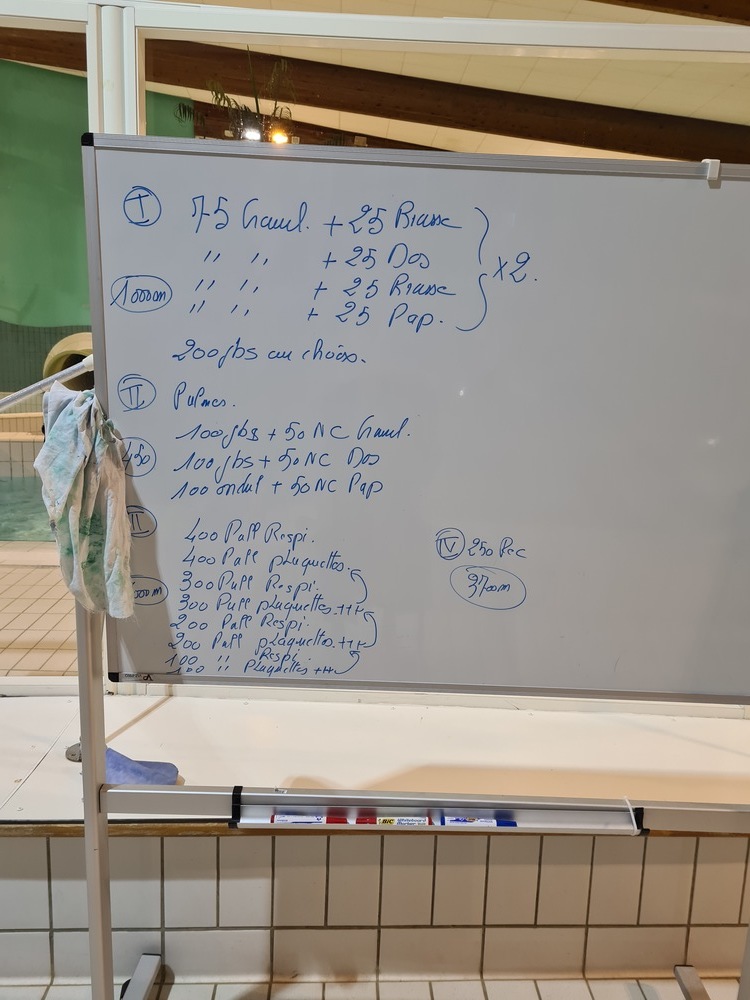 I 75 Crawl. + 25 Brasse
" " + 25 Dos
x2.
1000m " " + 25 Brasse
" " + 25 Pap.
200 jbs au choix.
II Palmes.
100 jbs + 50 NC Crawl.
450 100 jbs + 50 NC Dos
100 ondul + 50 NC Pap
400 Pull Respi.
400 Pull plaquettes.
300 Pull Respi.
300 Pull plaquettes. +++
200 Pull Respi.
200 Pull plaquettes. +++
100 " Respi.
100 " Plaquettes +++
IV 250 Rec
3700m
BIC